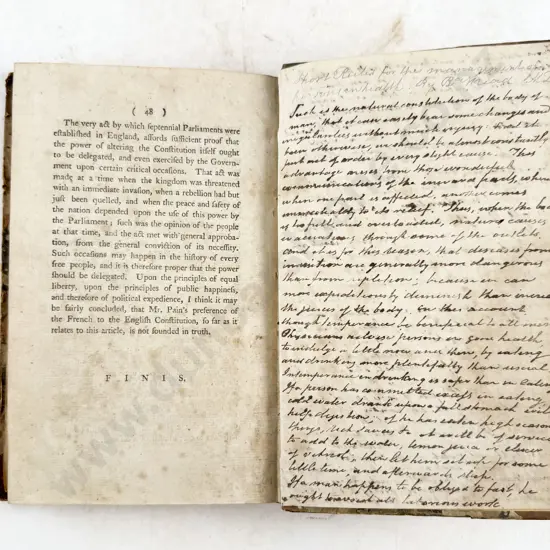 ( 48 )
The very act by which septennial Parliaments were
established in England, affords sufficient proof that
the power of altering the Constitution itself ought
to be delegated, and even exercised by the Govern-
ment upon certain critical occasions. That act was
made at a time when the kingdom was threatened
with an immediate invasion, when a rebellion had but
just been quelled, and when the peace and safety of
the nation depended upon the use of this power by
the Parliament; such was the opinion of the people
at that time, and the act met with general approba-
tion, from the general conviction of its necessity.
Such occasions may happen in the history of every
free people, and it is therefore proper that the power
should be delegated. Upon the principles of equal
liberty, upon the principles of public happiness,
and therefore of political expedience, I think it may
be fairly concluded, that Mr. Pain's preference of
the French to the English Constitution, so far as it
relates to this article, is not founded in truth.
FINIS.
Rules for the
Such is the natural constitution of the body of
man, that it can easily bear some changes and
irregularities without much injury:
otherwise, we should be almost constantly
put out of order by every slight cause. This
advantage arises from those wonderful
communications of the inward parts, whereby
when one part is affected, another comes
immediately to its relief. Thus, when the body
is too full and overloaded, nature causes
evacuations through some of the outlets.
And it is for this reason, that diseases from
inanition are generally more dangerous
than from repletion; because we can
more expeditiously diminish than increase
the juices of the body. On this account
though temperance be beneficial to all men
Physicians advise persons in good health,
to indulge a little now and then, by eating
and drinking more plentifully than usual.
Intemperance in drinking is safer than in eating
If a person has committed excess in eating
cold water drank upon a full stomach will
help digestion;
to add to the water, lemon juice or elixir
of vitriol; then let him sit up for some
little time, and afterwards sleep.
If a man happens to be obliged to fast, he
ought to avoid all laborious work